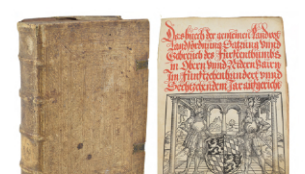 Das buech der gemeinen Landpot
Landsordnung Satzung vnnd
Gebreuch des Fürstenthumbs
in Obern vnnd Nidern Bairn
Jm Fünfftzehenhundert vnnd
Sechtzehendem Jar aufgericht